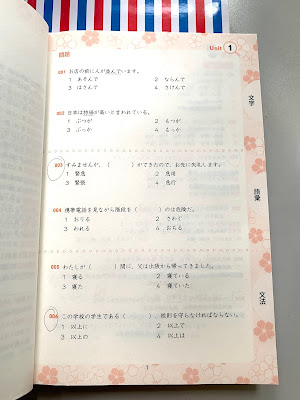 問題
Unit 1
001 お店の前に人が並んでいます。
1 あそんで 2 ならんで
3 はさんで 4 さけんで
002 日本は物価が高いと言われている。
1 ぶつが 2 もつが
3 ぶっか 4 もっか
003 すみませんが、( )ができたので、お先に失礼します。
1 緊急 2 急用
3 緊張 4 急行
004 携帯電話を見ながら階段を( )のは危険だ。
1 おりる 2 さわぐ
3 われる 4 おちる
005 わたしが( )間に、父は出張から帰ってきました。
1 寝る 2 寝ている
3 寝た 4 寝ていた
006 この学校の学生である( )、校則を守らなければならない。
1 以上に 2 以上で
3 以上の 4 以上は
文字
語彙
文法
1